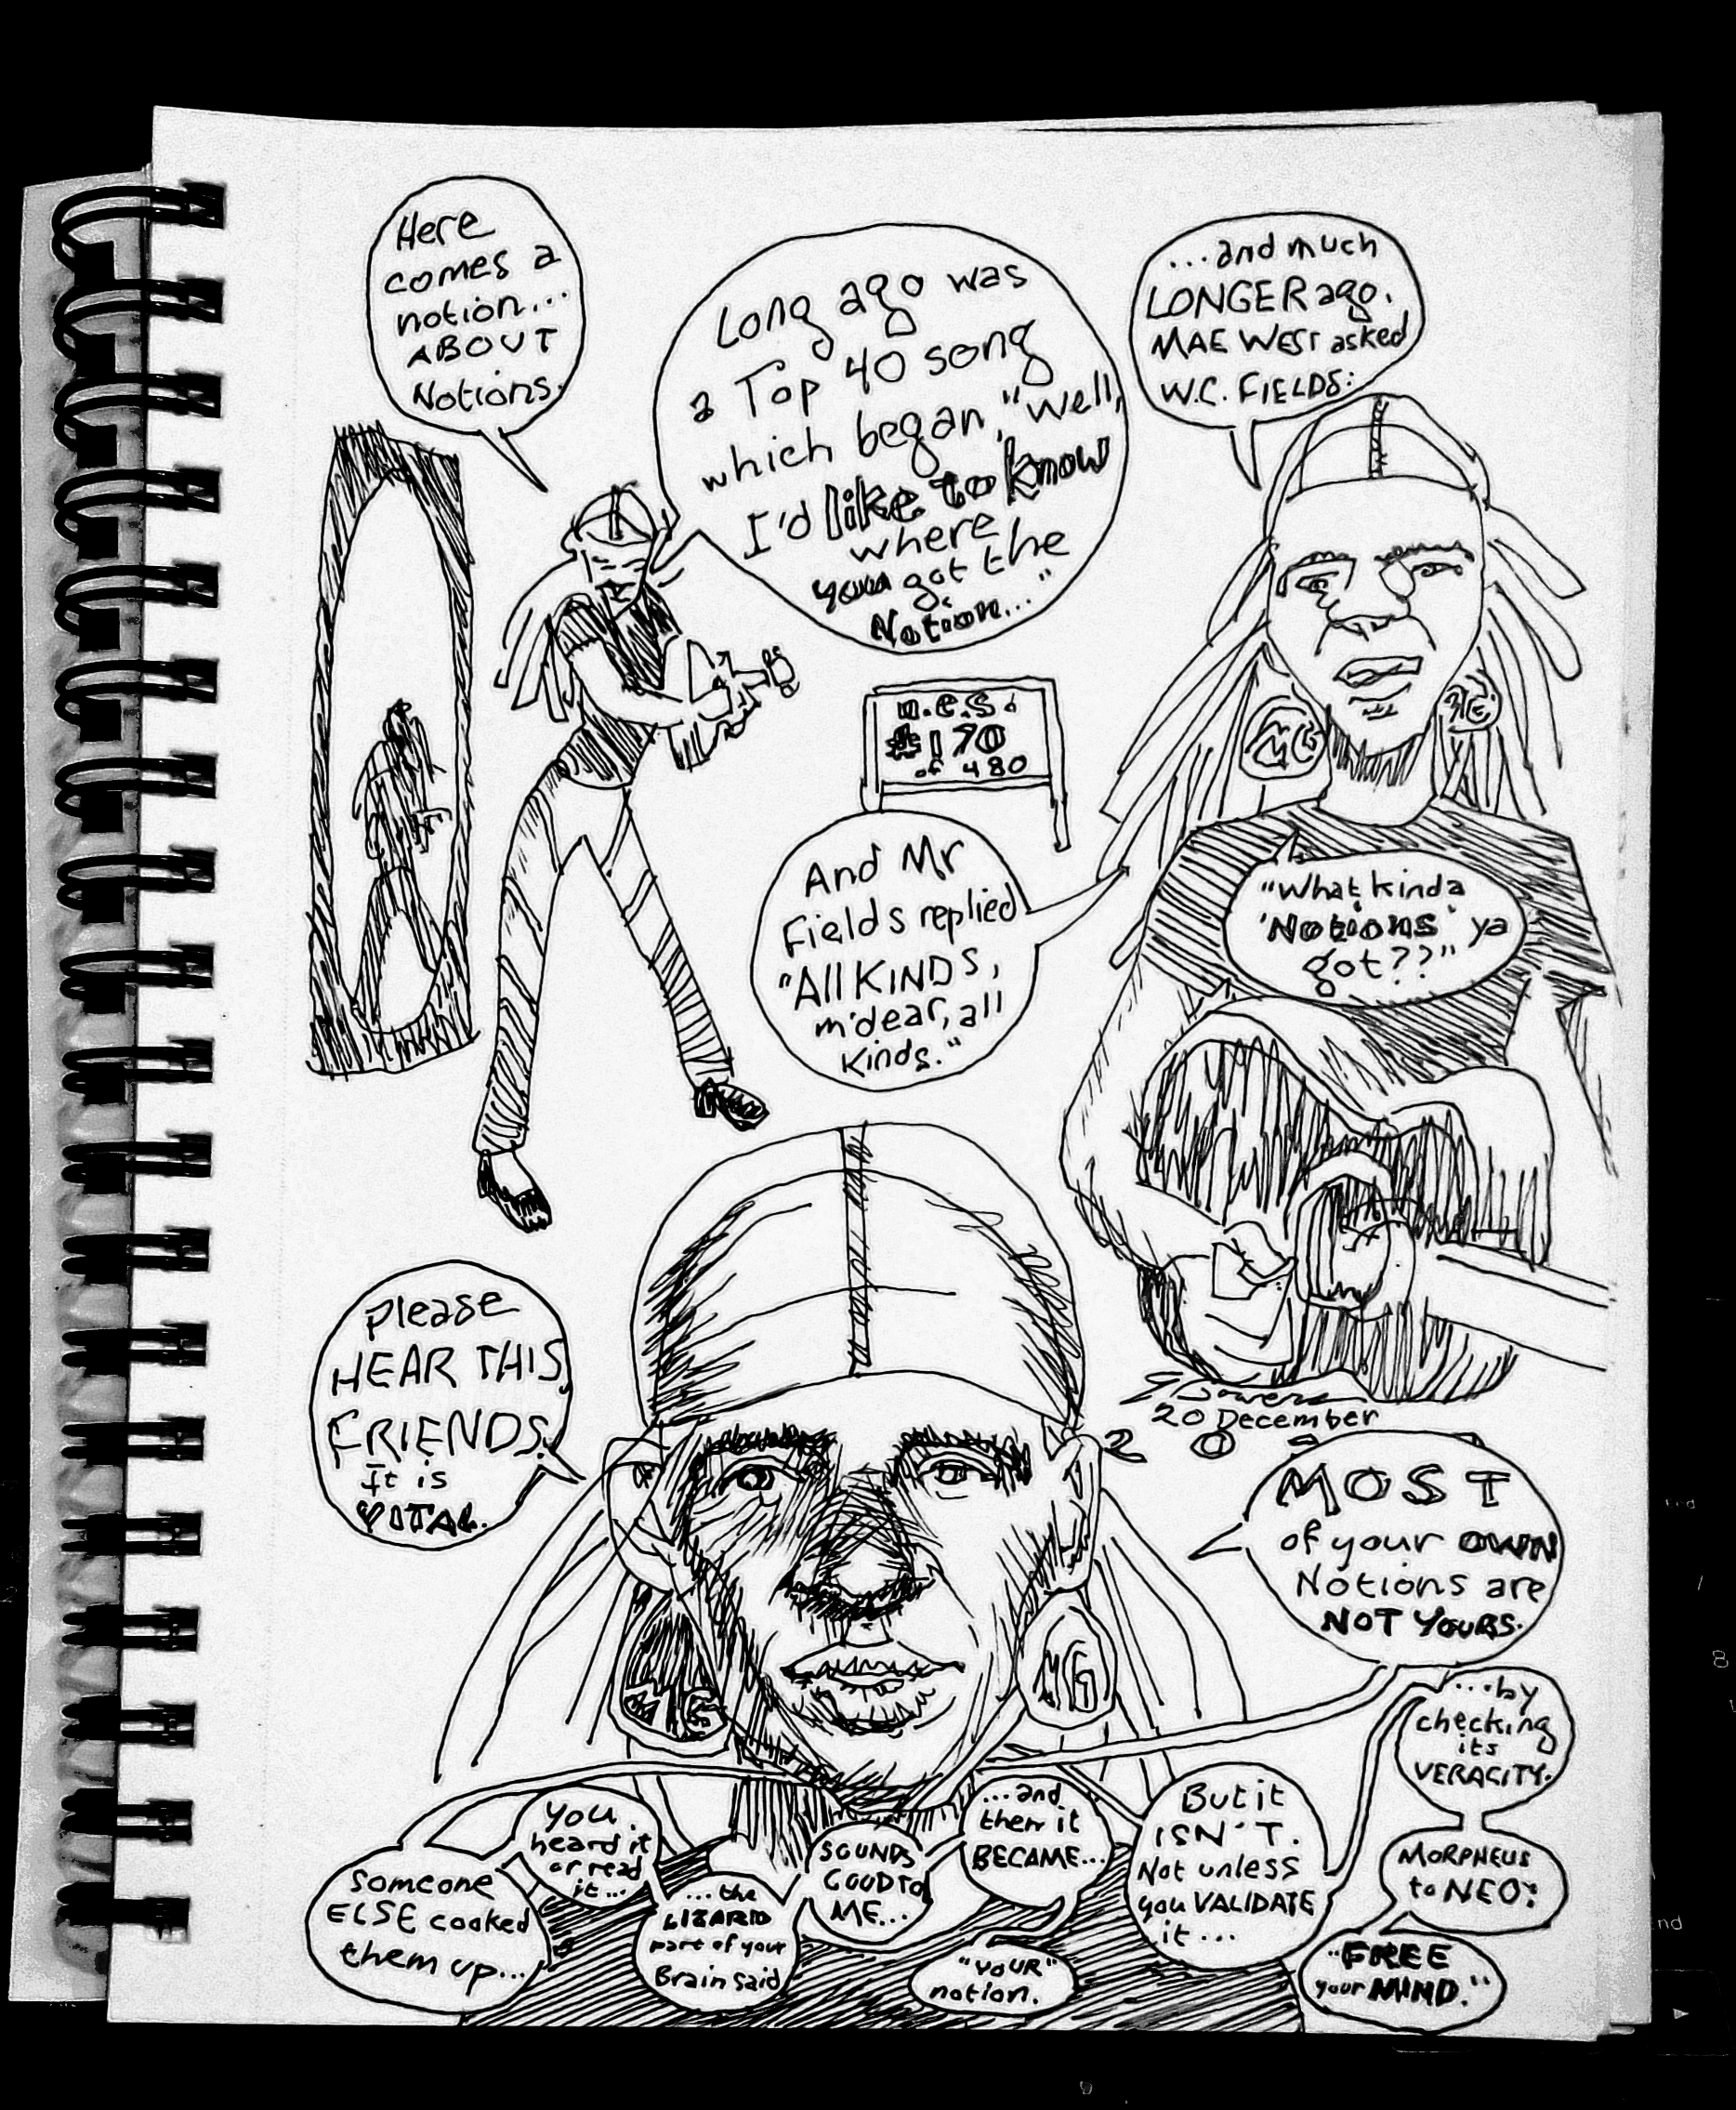 Here
comes a
notion...
ABOUT
Notions.
Long ago was
a Top 40 song
which began, "Well,
I'd like to know
where
you got the
Notion..."
...and much
LONGER ago,
MAE WEST asked
W.C. FIELDS:
"What kinda
'Notions' ya
got??"
n.e.s.
#170
of 480
And Mr
Fields replied
"All KINDS,
m'dear, all
kinds."
MG
20 December
2
Please
HEAR THIS,
FRIENDS.
It is
VITAL.
MOST
of your OWN
Notions are
NOT YOURS.
MG
MG
Someone
ELSE cooked
them up...
You
heard it
or read
it...
...the
LIZARD
part of your
Brain said
SOUNDS
GOOD TO
ME...
...and
then it
BECAME...
"YOUR"
notion.
But it
ISN'T.
Not unless
you VALIDATE
it...
...by
checking
its
VERACITY.
MORPHEUS
to NEO:
"FREE
your MIND."